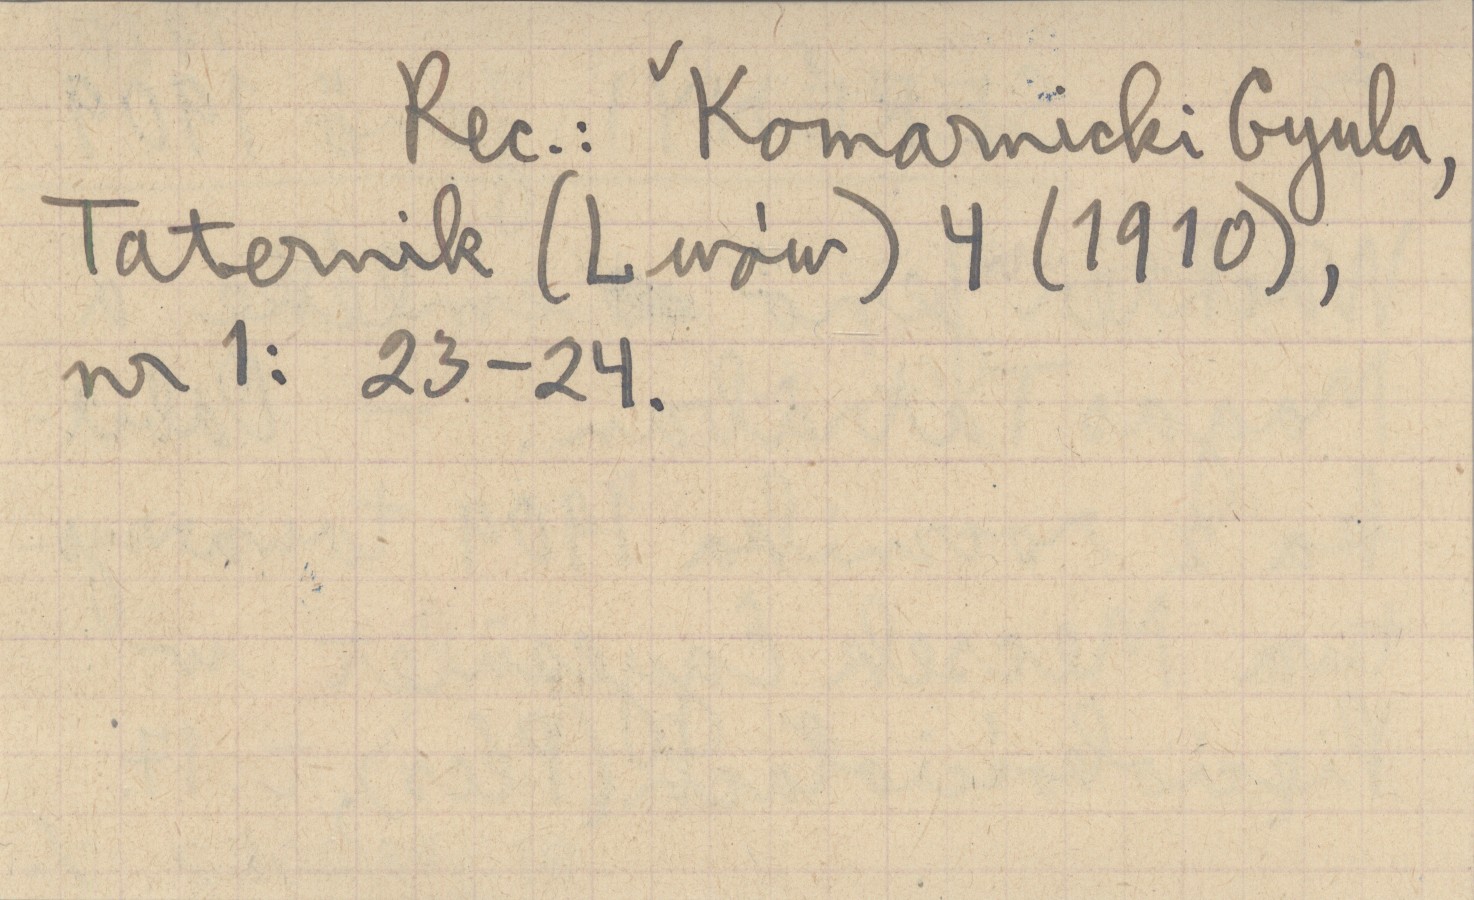 Rec.: ✓Komarnicki Gyula,
Taternik (Lwów) 4 (1910),
nr 1: 23-24.